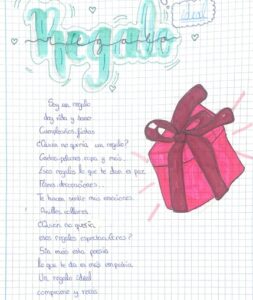 ideal
Regalo
regalo
Soy un regalo
doy vida y amor
Cumpleaños, fiestas
¿Quién no quería un regalo?
Contra-peluches ropa y más...
Esos regalos lo que te dan es paz
Flores, decoraciones...
Te hacen sentir mas emociones
Anillos, collares
¿Quien no quería
esos regalos espectaculares?
Sin mas esta poesía
lo que te da es más empatía
Un regalo ideal
comparame y verás